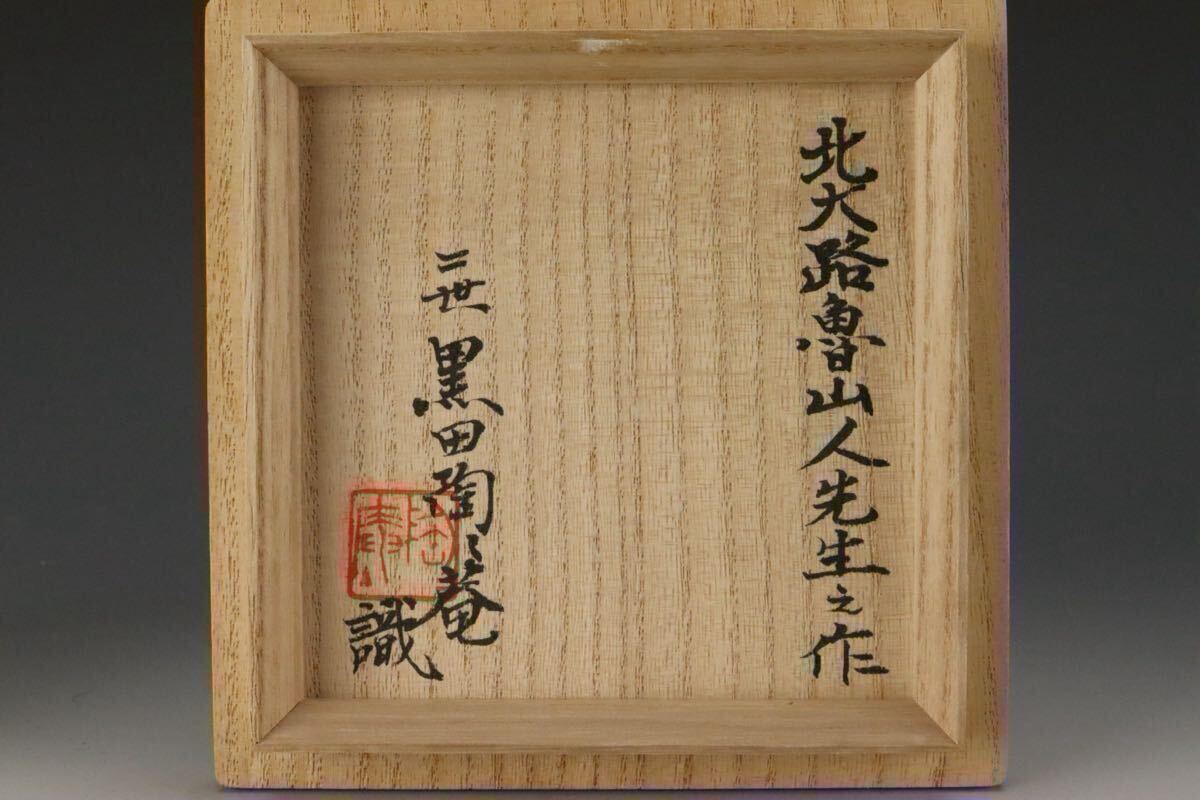 北大路魯山人先生之作
二世黒田陶々菴
識